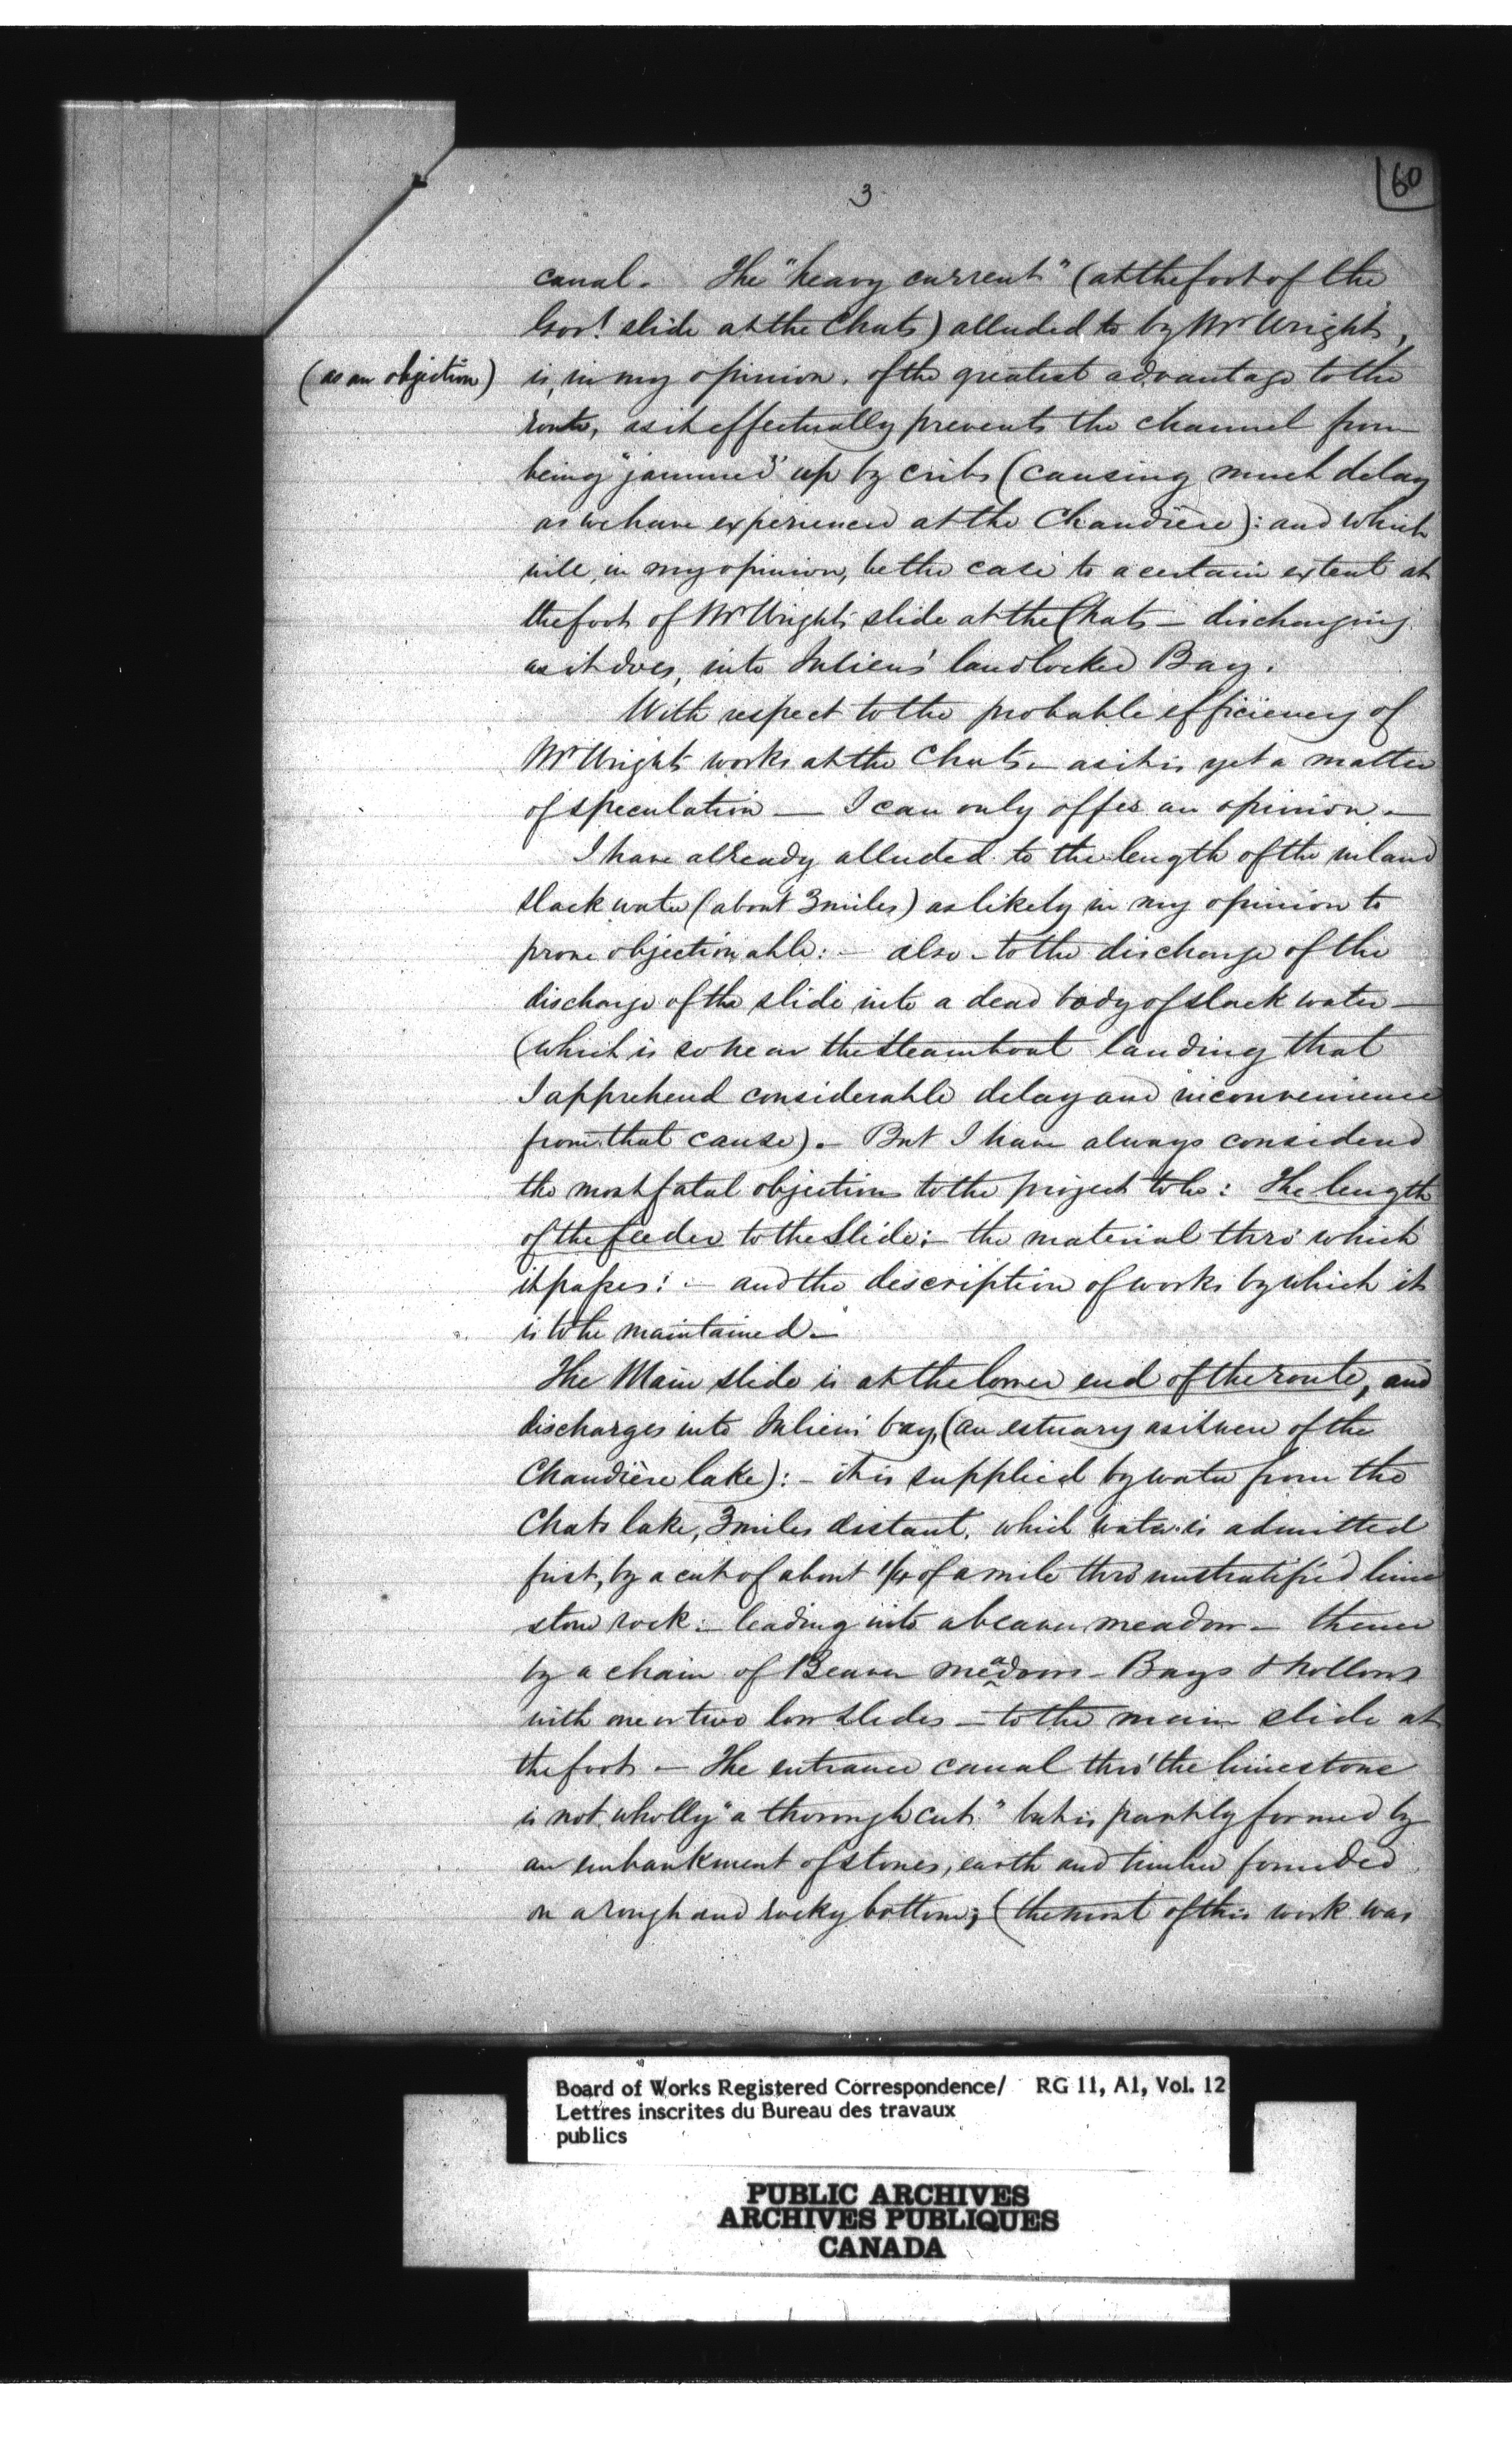 60
3
canal. The "heavy current" (at the foot of the
Govt. slide at the Chats) alluded to by Mr Wright,
(as an objection)
is, in my opinion, of the greatest advantage to the
route, as it effectually prevents the channel from
being "jammed" up by cribs (causing much delay
as we have experienced at the Chaudière): and which
will, in my opinion, be the case to a certain extent at
the foot of Mr Wright's slide at the Chats — discharging
as it does, into Juliens' landlocked Bay.
With respect to the probable efficiency of
Mr Wright's works at the Chats — as it is yet a matter
of speculation — I can only offer an opinion. —
I have already alluded to the length of the inland
slack water (about 3 miles) as likely in my opinion to
prove objectionable: — also — to the discharge of the
discharge of the slide into a dead body of slack water —
(which is so near the steamboat landing that
I apprehend considerable delay and inconvenience
from that cause). — But I have always considered
the most fatal objections to the project to be: The length
of the feeder to the slide: — the material thro' which
it passes: — and the description of works by which it
is to be maintained —
The Main slide is at the lower end of the route, and
discharges into Juliens' bay, (an estuary as it were of the
Chaudière lake): — it is supplied by water from the
Chats lake, 3 miles distant, which water is admitted
first, by a cut of about 1/4 of a mile thro' unstratified lime
stone rock: — leading into a beaver meadow — thence
by a chain of Beaver meadows — Bays & hollows
with one or two low slides — to the main slide at
the foot — The entrance canal thro' the limestone
is not wholly "a thorough cut" but is partly formed by
an embankment of stones, earth and timber founded
on a rough and rocky bottom; (the most of this work was
Board of Works Registered Correspondence/ RG 11, A1, Vol. 12
Lettres inscrites du Bureau des travaux
publics
PUBLIC ARCHIVES
ARCHIVES PUBLIQUES
CANADA